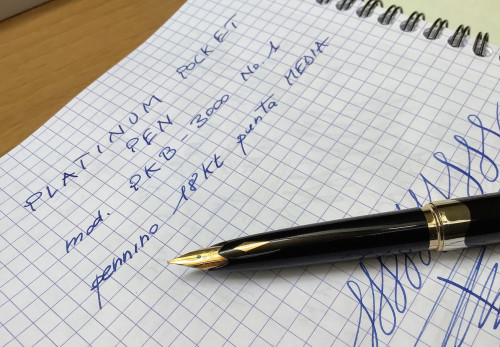 PLATINUM POCKET
PEN
mod. PKB-3000 No. 1
pennino 18Kt punta MEDIA